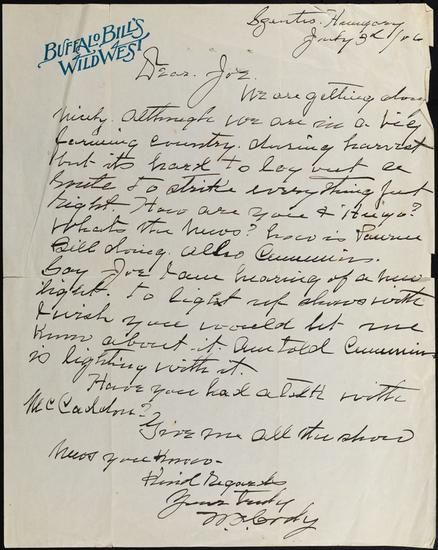 BUFFALO BILL'S
WILD WEST
Szentes. Hungary
July 3d / 06
Dear. Joe.
We are getting along
nicely. although we are in a big
farming country. during harvest
but its hard to lay out a
route to strike everything just
right How are you & Hugo?
Whats the news? how is Pawnee
Bill doing. also Cummins.
Say Joe I am hearing of a new
light. to light up shows with
I wish you would let me
know about it. Am told Cummins
is lighting with it.
Have you had a talk with
McCaddon?
Give me all the show
news you know-
Kind Regards
Yours truly
W. F. Cody